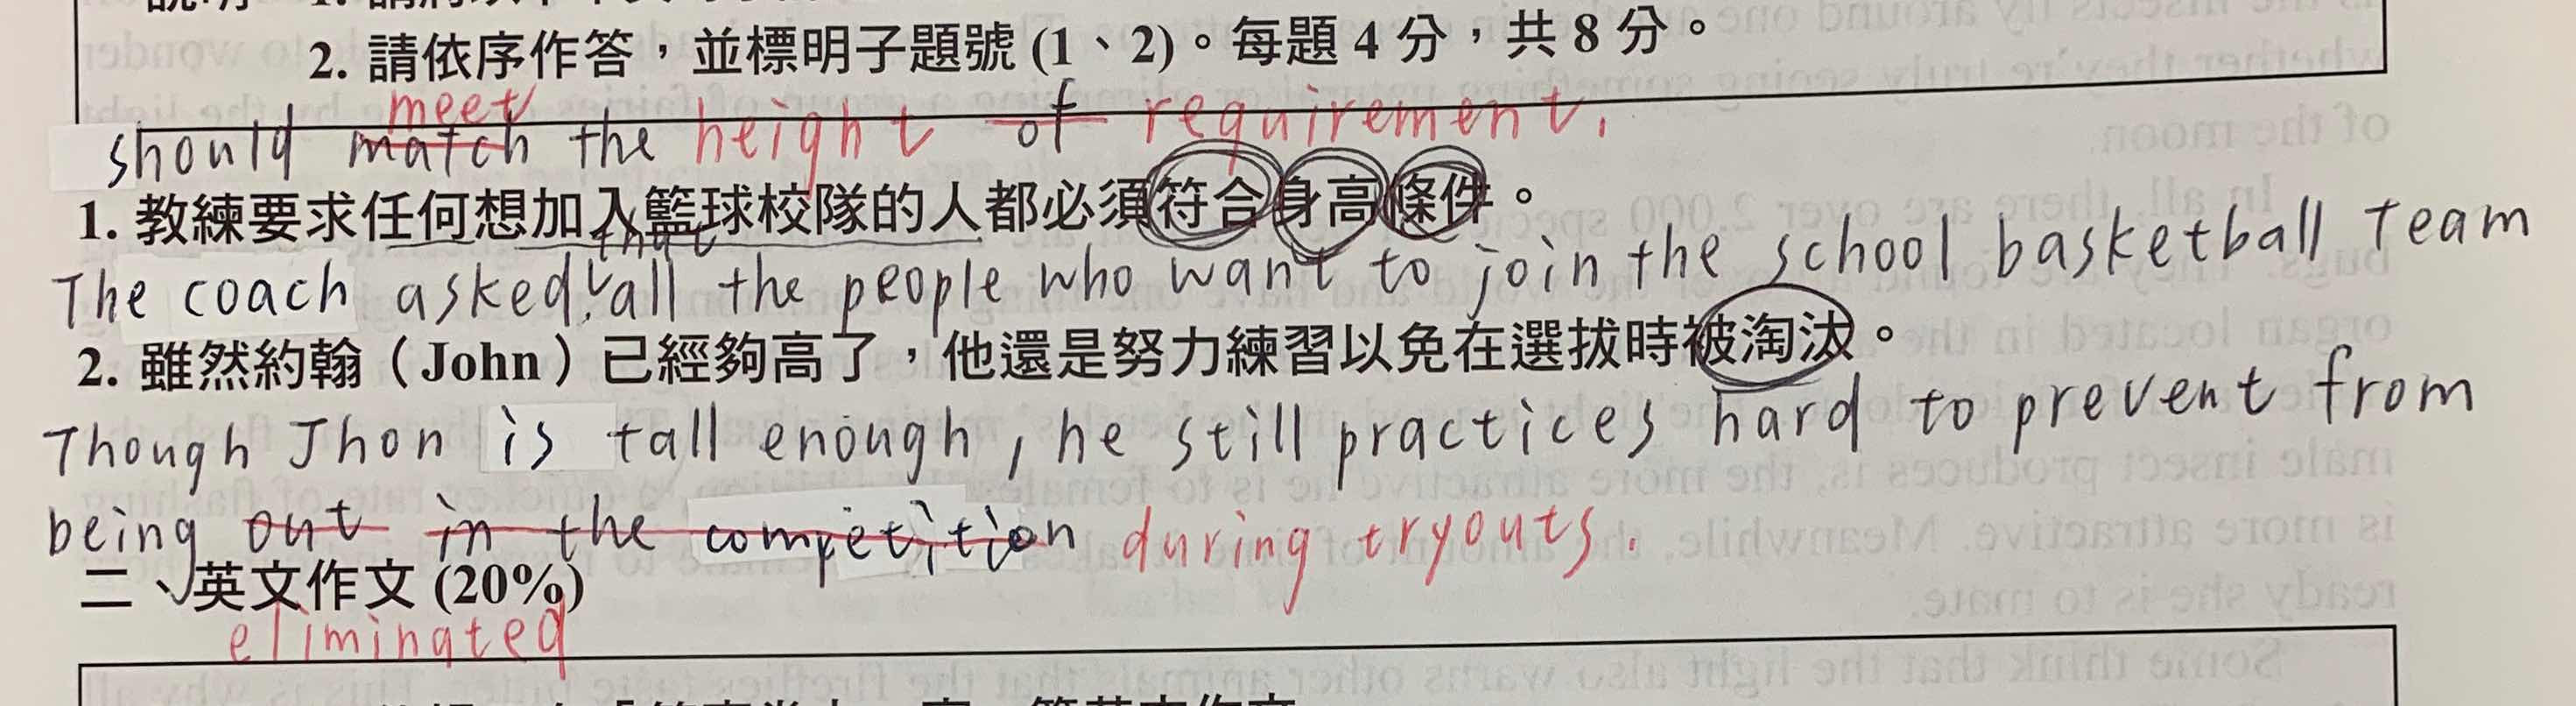 2. 請依序作答，並標明子題號 (1、2)。每題 4 分，共 8 分。
meet
should match the height of requirement.
1. 教練要求任何想加入籃球校隊的人都必須符合身高條件。
that
The coach asked, all the people who want to join the school basketball team
2. 雖然約翰（John）已經夠高了，他還是努力練習以免在選拔時被淘汰。
Though Jhon is tall enough, he still practices hard to prevent from
being out in the competition during tryouts.
二、英文作文 (20%)
eliminated